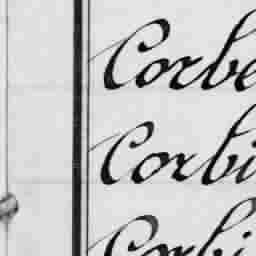 Corbe
Corbi
Corbi